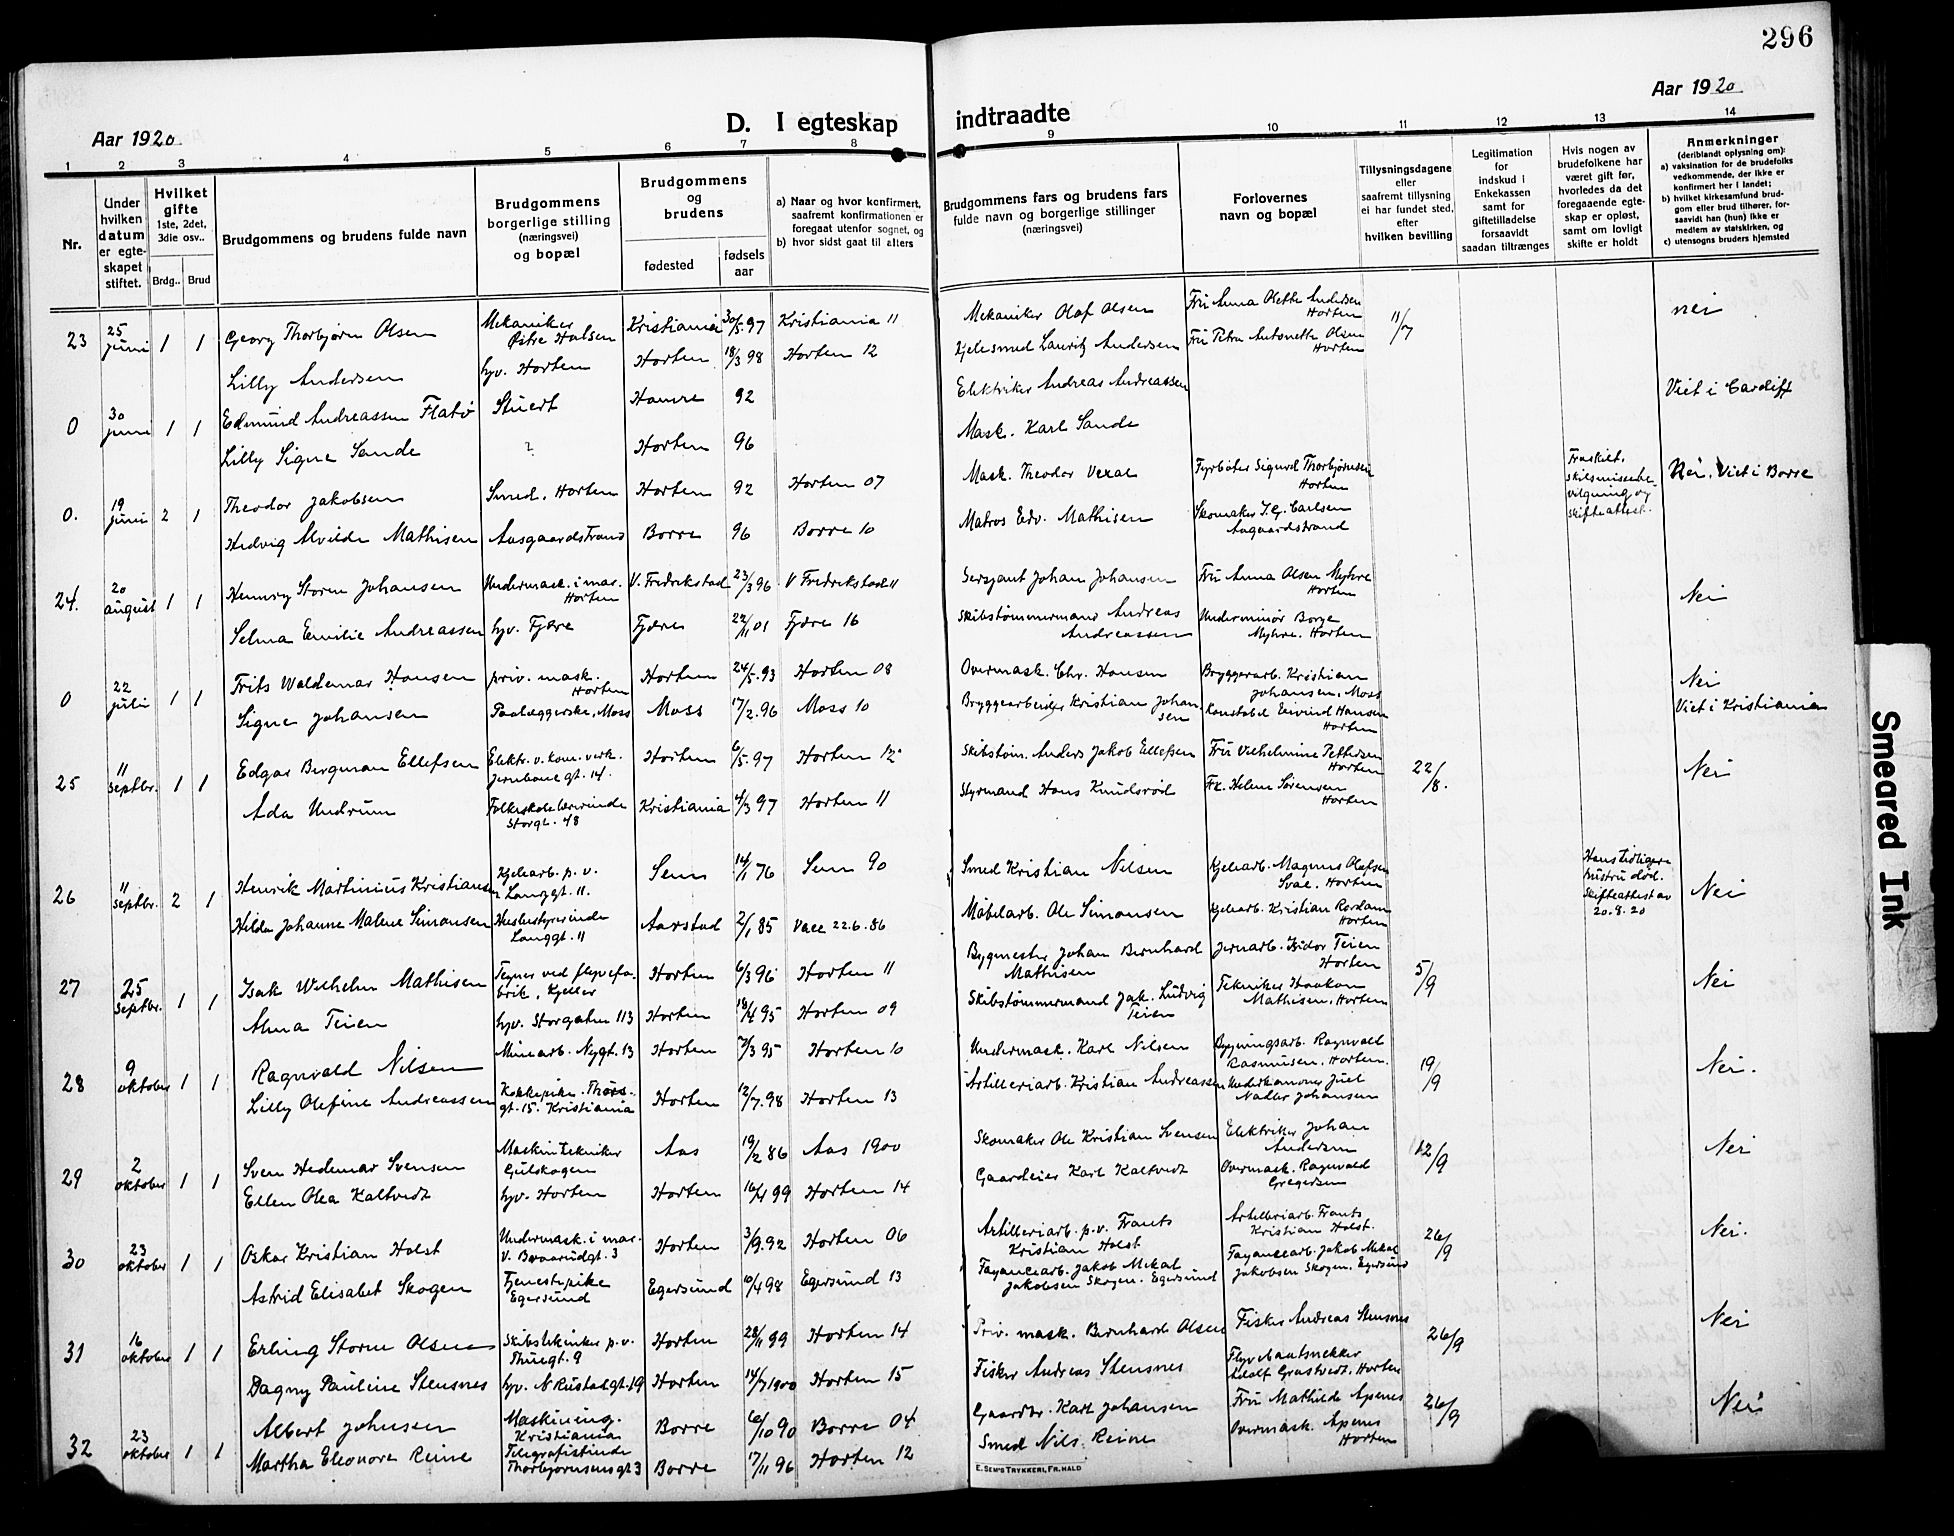 296
Aar 1920
Aar 1920
D. I egteskap indtraadte
1 2 3 4 5 6 7 8 9 10 11 12 13 14
Nr.
Under hvilken datum er egteskapet stiftet.
Hvilket gifte
1ste, 2det, 3die osv..
Brdg.. Brud
Brudgommens og brudens fulde navn
Brudgommens borgerlige stilling
(næringsvei)
og bopæl
Brudgommens og brudens
fødested
fødsels aar
a) Naar og hvor konfirmert, saafremt konfirmationen er foregaat utenfor sognet, og
b) hvor sidst gaat til alters
Brudgommens fars og brudens fars
fulde navn og borgerlige stillinger
(næringsvei)
Forlovernes
navn og bopæl
Tillysningsdagene
eller
saafremt tillysning
ei har fundet sted,
efter
hvilken bevilling
Legitimation
for
indskud i
Enkekassen
samt for
giftetilladelse
forsaavidt
saadan tiltrænges
Hvis nogen av
brudefolkene har
været gift før,
hvorledes da det
foregaaende egte-
skap er opløst,
samt om lovligt
skifte er holdt
Anmerkninger
(deriblandt oplysning om):
a) vaksination for de brudefolks vedkommende, der ikke er konfirmert her i landet;
b) hvilket kirkesamfund brudgom eller brud tilhører, forsaavidt han (hun) ikke er medlem av statskirken, og
c) utensogns bruders hjemsted
23 25 juni 1 1 Georg Thorbjørn Olsen Mekaniker Østre Halsen Kristiania 30/5.97 Kristiania 11 Mekaniker Olaf Olsen Fru Anna Olette Andersen Horten 11/7 nei
Lilly Andersen hjv. Horten Horten 18/3 98 Horten 12 Kjelesmed Lauritz Andersen Fru Petra Antonette Olsen Horten
0 30 juni 1 1 Edmund Andreassen Flatø Stuert Hamre 92 Elektriker Andreas Andreassen Viet i Cardiff
Lilly Signe Sande ? Horten 96 Mask. Karl Sande
0. 19 juni 2 1 Theodor Jakobsen Smed. Horten Horten 92 Horten 07 Mask. Theodor Fyrbøter Sigurd Thorbjørnsen Horten Fraskilt. Skilsmissebevilgning og skifteattest. Nei. Viet i Borre
Hedvig Alvilde Mathisen Aasgaardstrand Borre 96 Borre 10 Matros Edv. Mathisen Skomaker Carlsen Aagaardstrand
24. 20 august 1 1 Henry Storm Johansen Undermask. i mar. Horten V. Fredrikstad 23/3 96 V Fredrikstad 11 Sersjant Johan Johansen Fru Anna Olsen Myhre Horten Nei
Selma Emilie Andreassen hjv. Fjære Fjære 22/11 01 Fjære 16 Skibstømmermand Andreas Andreassen Underminør Borge Myhre. Horten
0 22 juli 1 1 Frits Waldemar Hansen priv. mask. Horten Horten 24/5.93 Horten 08 Overmask. Chr. Hansen Bryggerarb. Kristian Johansen. Moss Nei
Signe Johansen Paalæggerske, Moss Moss 17/2.96 Moss 10 Bryggearbeider Kristian Johansen Konstabel Eivind Hansen Horten Viet i Kristiania
25 11 septbr. 1 1 Edgar Bergman Ellefsen Elektr. v. kom. verk. Jernbanegt. 14. Horten 6/5.97 Horten 12 Skibstøm. Anders Jakob Ellefsen Fru Vilhelmine Pettersen Horten 22/8. Nei
Ada Undrum Folkeskolelærerinde Storgt. 48 Kristiania 4/3 97 Horten 11 Styrmand Hans Knudsrød Fr. Helene Sørensen Horten
26 11 septbr. 2 1 Henrik Martinius Kristiansen Kjelearb. p. v. Langgt. 11. Sem 14/1 76 Sem 90 Smed Kristian Nilsen Kjelearb. Magnus Olafsen Svae. Horten Hans tidligere hustru død. Skifteattest av 20.8.20 Nei
Hilda Johanne Malene Simonsen Husbestyrerinde Langgt. 11 Aarstad 2/1 85 Vace 22.6.86 Møbelarb. Ole Simonsen Kjelearb. Kristian Rordam Horten
27 25 septbr. 1 1 Isak Wilhelm Mathisen Tegner ved flyvefabrik, Kjeller Horten 6/3 96 Horten 11 Bygmester Johan Bernhard Mathisen Jernarb. Isidor Teien Horten 5/9 Nei
Alma Teien hjv. Storgaten 113 Horten 18/4 95 Horten 09 Skibstømmermand Jak. Ludvig Teien Tekniker Haakon Mathisen, Horten
28 9 oktober 1 1 Ragnvald Nilsen Minearb. Nygt. 13 Horten 7/3 95 Horten 10 Undermask. Karl Nilsen Bygningsarb. Ragnvald Rasmussen, Horten. 19/9 Nei.
Lilly Olefine Andreassen Kokkepike. Thorsgt. 15. Kristiania Horten 12/7.98 Horten 13 Artilleriarb. Kristian Andreassen Underkanoner Juel Nadler Johansen
29 2 oktober 1 1 Sven Hedemar Svensen Maskintekniker Gulskogen Aas 19/2 86 Aas 1900 Skomaker Ole Kristian Svensen Elektriker Johan Andersen 12/9 Nei
Ellen Olea Kaltvedt hjv. Horten Horten 16/4 99 Horten 14 Gaardeier Karl Kaltvedt Overmask. Ragnvald Gregersen
30 23 oktober 1 1 Oskar Kristian Holst Undermask. i mar. V. Bevaarudgt. 3 Horten 3/9.92 Horten 06 Artilleriarb. p.v. Frants Kristian Holst Artilleriarb. Frants Kristian Holst. 26/9 Nei.
Astrid Elisabet Skogen Tjenestepike Egersund Egersund 10/4 98 Egersund 13 Fayancearb. Jakob Mikal Jakobsen Skogen. Egersund Fayancearb. Jakob Mikal Jakobsen Skogen. Egersund
31 16 oktober 1 1 Erling Storm Olsen Skibstekniker p.v. Thuegt. 9 Horten 28/11 99 Horten 14 Priv. mask. Bernhard Olsen Fisker Andreas Stensnes 26/9 Nei
Dagny Pauline Stensnes hjv. N Rustadgt. 19 Horten 14/7 1900 Horten 15 Fisker Andreas Stensnes Flyvebaatsnekker Adolf Grastvedt, Horten
32 23 oktober 1 1 Albert Johnsen Maskining. Kristiania Borre 6/10 90 Borre 04 Gaardbr. Karl Johansen Fru Mathilde Apenes 26/9 Nei
Martha Eleonore Reine Telegrafistinde Thorbjørnsensgt 3 Borre 17/11 96 Horten 12 Smed Nils Reine Overmask. Apenes Horten
E. SEM'S TRYKKERI, FR.HALD
Smeared Ink